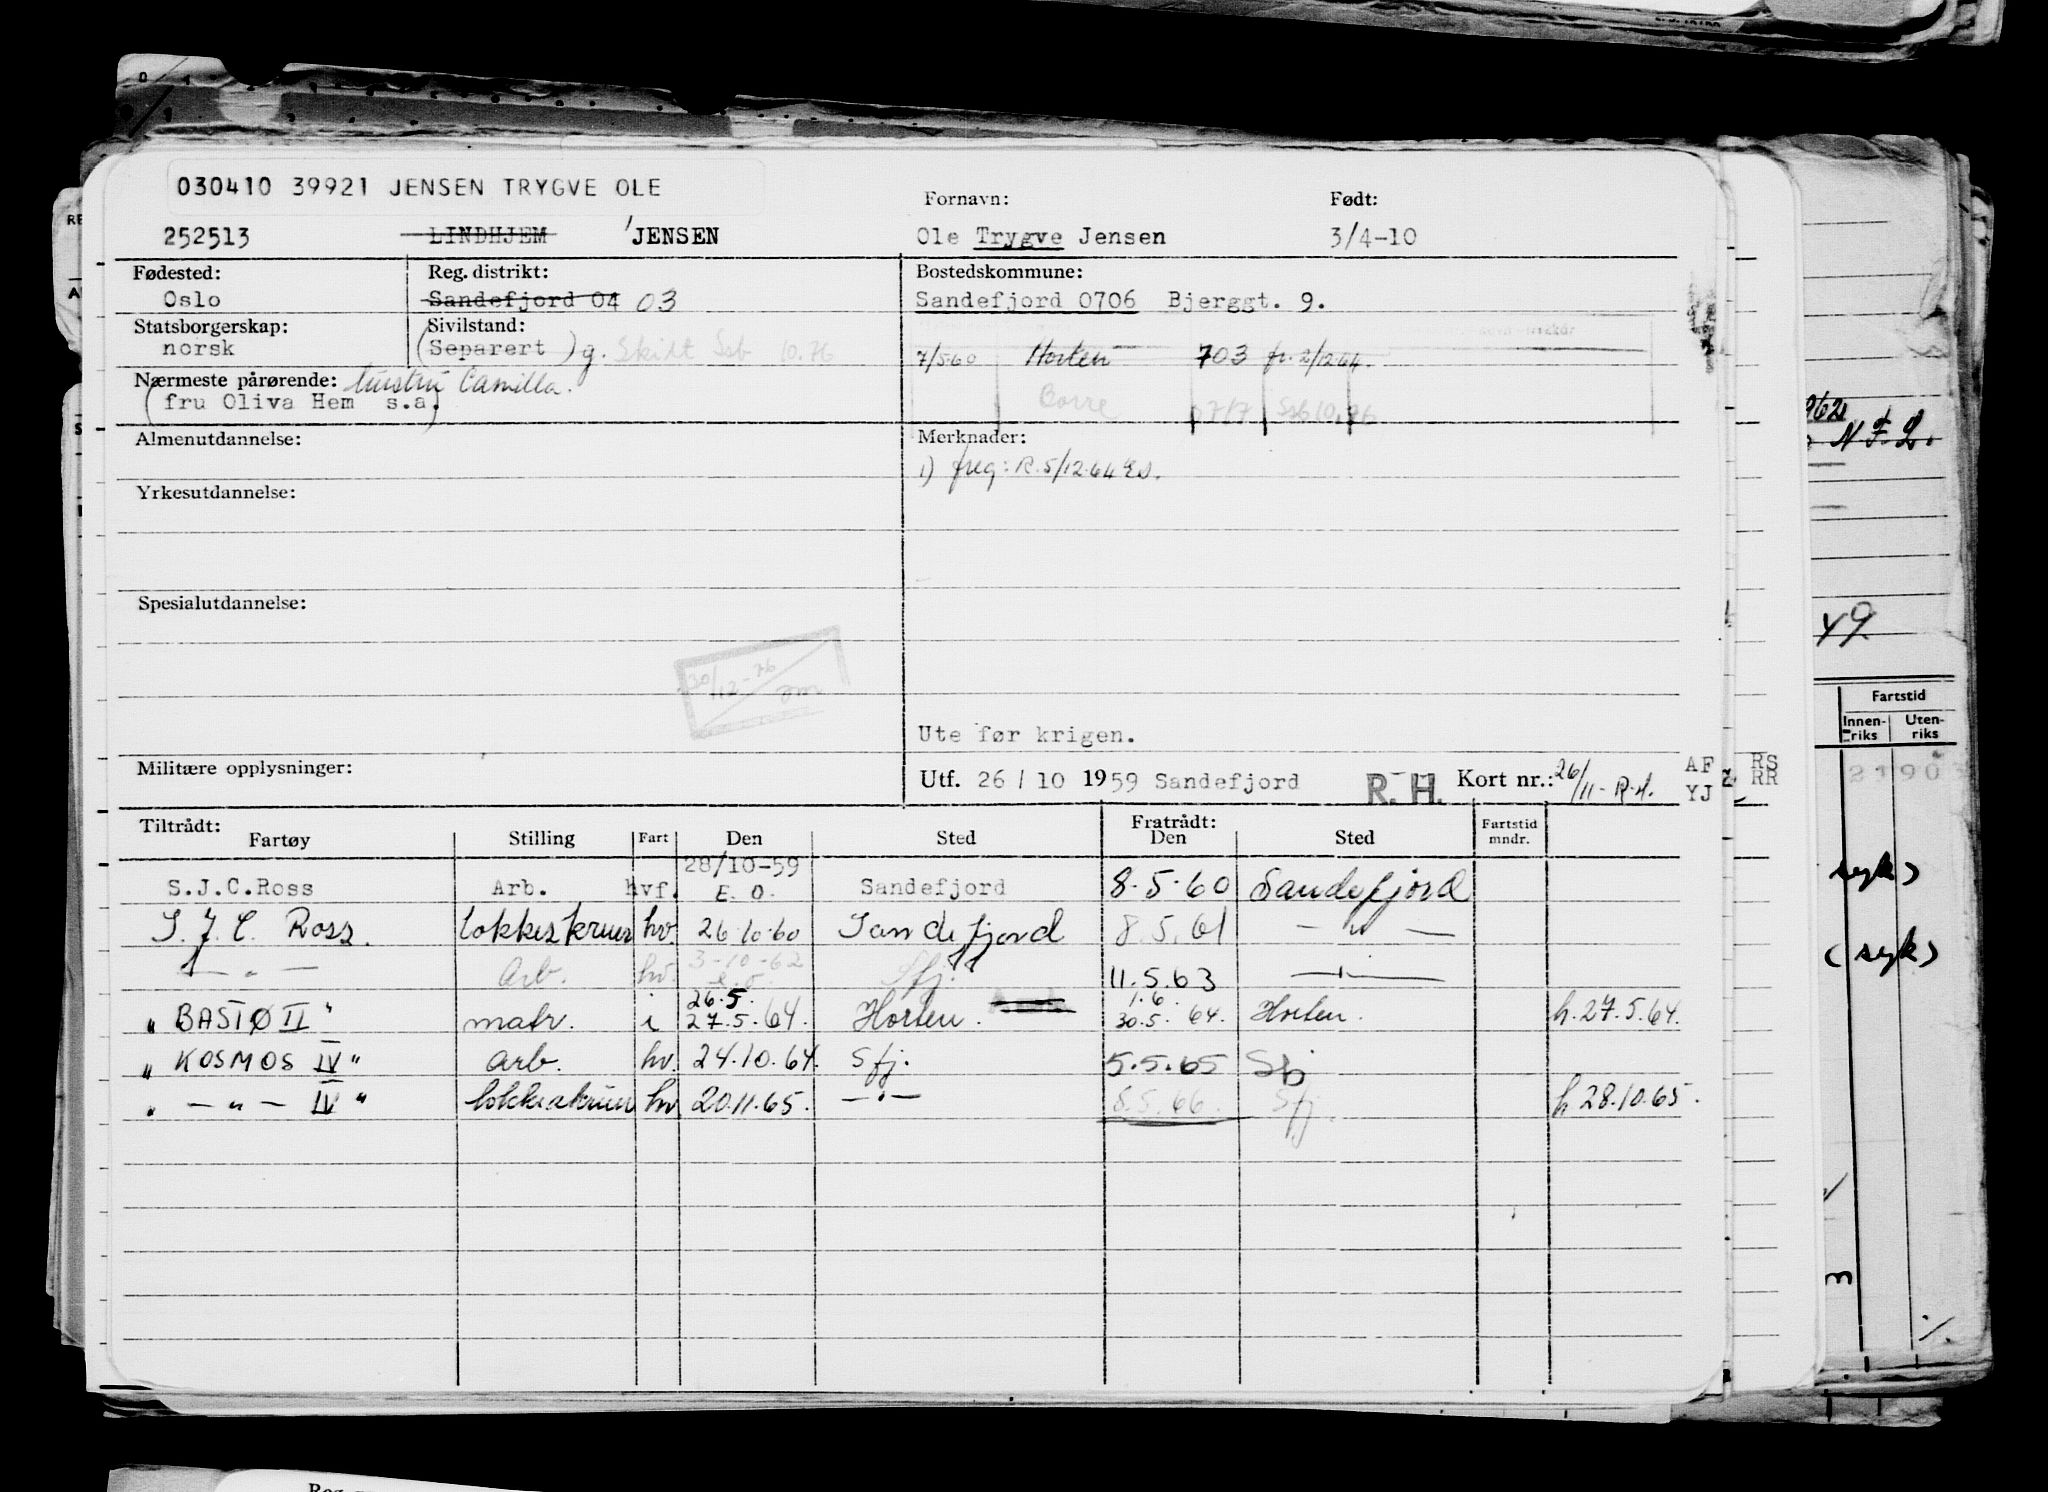 030410 39921 JENSEN TRYGVE OLE
252513 LINDHJEM 'JENSEN
Fornavn: Født:
Ole Trygve Jensen 3/4-10
Fødested: Reg. distrikt: Bostedskommune:
Oslo Sandefjord 04 03 Sandefjord 0706 Bjerggt. 9.
Statsborgerskap: Sivilstand:
norsk (Separert) g. Skilt Ssb 10.76
7/5 60 Horten 703 fr. 2/12 64.
Nærmeste pårørende: hustru Camilla.
(fru Oliva Hem s.a.)
Borre 717 Ssb 10.76
Almenutdannelse: Merknader:
1) freg: R. 5/12.64
Yrkesutdannelse:
Spesialutdannelse:
30/12-76
Ute før krigen.
Militære opplysninger:
Utf. 26 / 10 1959 Sandefjord R. H. Kort nr.: 26/11- R.H.
AF
YJ
RS
RR
Tiltrådt: Fratrådt:
Fartøy Stilling Fart Den Sted Den Sted Fartstid mndr.
S.J.C.Ross Arb. hvf. 28/10-59 E. O. Sandefjord 8.5.60 Sandefjord
S. J. C. Ross. kokkeskruer hv. 26.10.60 Sandefjord 8.5.61 — " —
— " — Arb. hv. 3-10-62 e.o. Sfj. 11.5.63 — " —
" BASTØ II " matr. i 26.5. 27.5.64. Horten. 1.6. 30.5.64. Horten. h. 27.5.64.
" KOSMOS IV " arb. hv. 24.10.64. Sfj. 5.5.65 Sfj
" — " — IV " hv 20.11.65. — " — 8.5.66. Sfj. h 28.10.65.
N. F. L.
49
Fartstid
Innen-riks Uten-riks
2190
syk)
(syk)